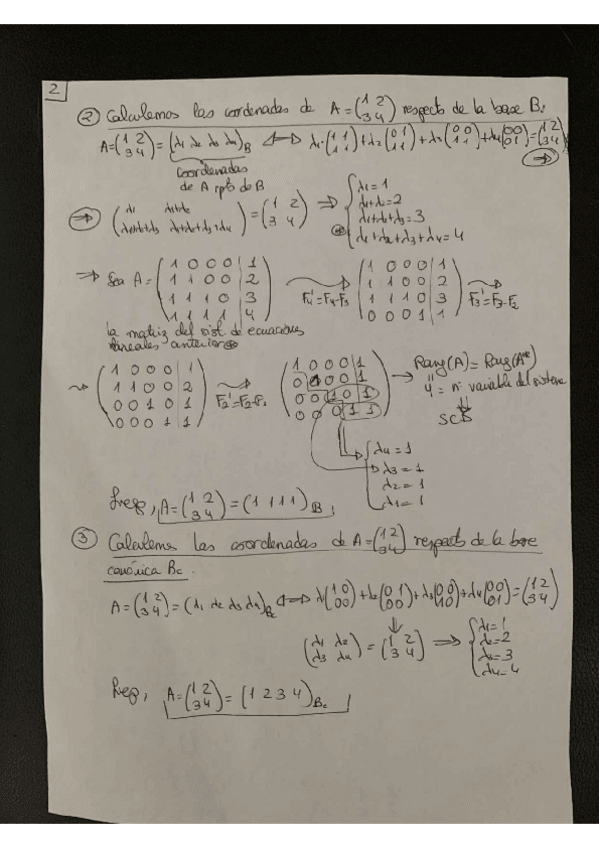 2
② Calculemos las coordenadas de A = (1 2 / 3 4) respecto de la base B.
A = (1 2 / 3 4) = (λ1 λ2 λ3 λ4)B ⟺ λ1(1 1 / 1 1) + λ2(0 1 / 1 1) + λ3(0 0 / 1 1) + λ4(0 0 / 0 1) = (1 2 / 3 4)
coordenadas
de A rpto de B
⇒ (λ1 λ1+λ2 / λ1+λ2+λ3 λ1+λ2+λ3+λ4) = (1 2 / 3 4) ⇒ { λ1 = 1
λ1+λ2 = 2
λ1+λ2+λ3 = 3
λ1+λ2+λ3+λ4 = 4
⇒ Sea A = (1 0 0 0 | 1 / 1 1 0 0 | 2 / 1 1 1 0 | 3 / 1 1 1 1 | 4) F4'=F4-F3 (1 0 0 0 | 1 / 1 1 0 0 | 2 / 1 1 1 0 | 3 / 0 0 0 1 | 1) F3'=F3-F2
la matriz del sist. de ecuaciones
lineales anterior
(1 0 0 0 | 1 / 1 1 0 0 | 2 / 0 0 1 0 | 1 / 0 0 0 1 | 1) F2'=F2-F1 (1 0 0 0 | 1 / 0 1 0 0 | 1 / 0 0 1 0 | 1 / 0 0 0 1 | 1) → Rang(A) = Rang(A*)
4 = nº variable del sistema
SCD
λ4 = 1
λ3 = 1
λ2 = 1
λ1 = 1
Luego, A = (1 2 / 3 4) = (1 1 1 1)B
③ Calculemos las coordenadas de A = (1 2 / 3 4) respecto de la base
canónica Bc.
A = (1 2 / 3 4) = (λ1 λ2 λ3 λ4)Bc ⟺ λ1(1 0 / 0 0) + λ2(0 1 / 0 0) + λ3(0 0 / 1 0) + λ4(0 0 / 0 1) = (1 2 / 3 4)
(λ1 λ2 / λ3 λ4) = (1 2 / 3 4) ⇒ { λ1 = 1
λ2 = 2
λ3 = 3
λ4 = 4
Luego, A = (1 2 / 3 4) = (1 2 3 4)Bc